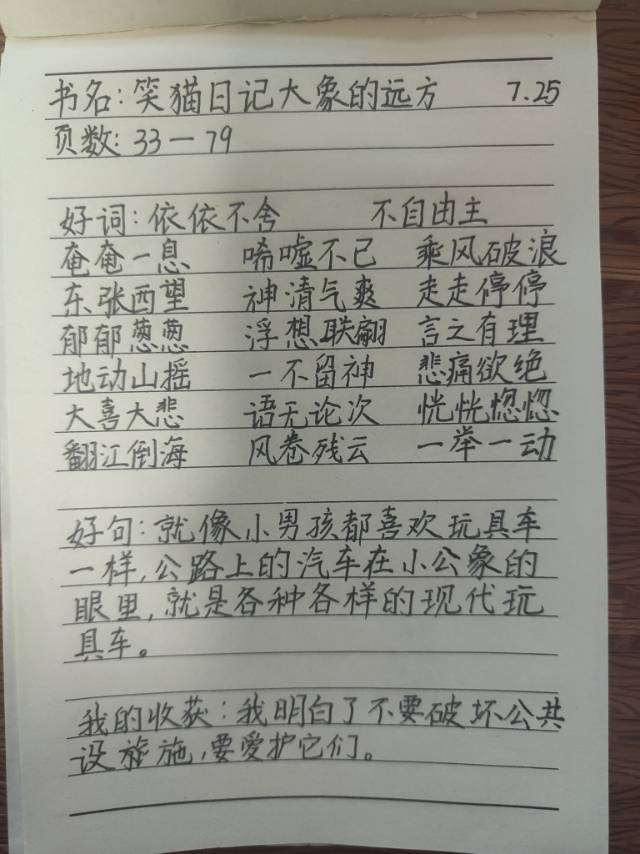 书名：笑猫日记大象的远方 7.25
页数：33—79
好词：依依不舍 不自由主
奄奄一息 唏嘘不已 乘风破浪
东张西望 神清气爽 走走停停
郁郁葱葱 浮想联翩 言之有理
地动山摇 一不留神 悲痛欲绝
大喜大悲 语无论次 恍恍惚惚
翻江倒海 风卷残云 一举一动
好句：就像小男孩都喜欢玩具车
一样，公路上的汽车在小公象的
眼里，就是各种各样的现代玩
具车。
我的收获：我明白了不要破坏公共
设施，要爱护它们。